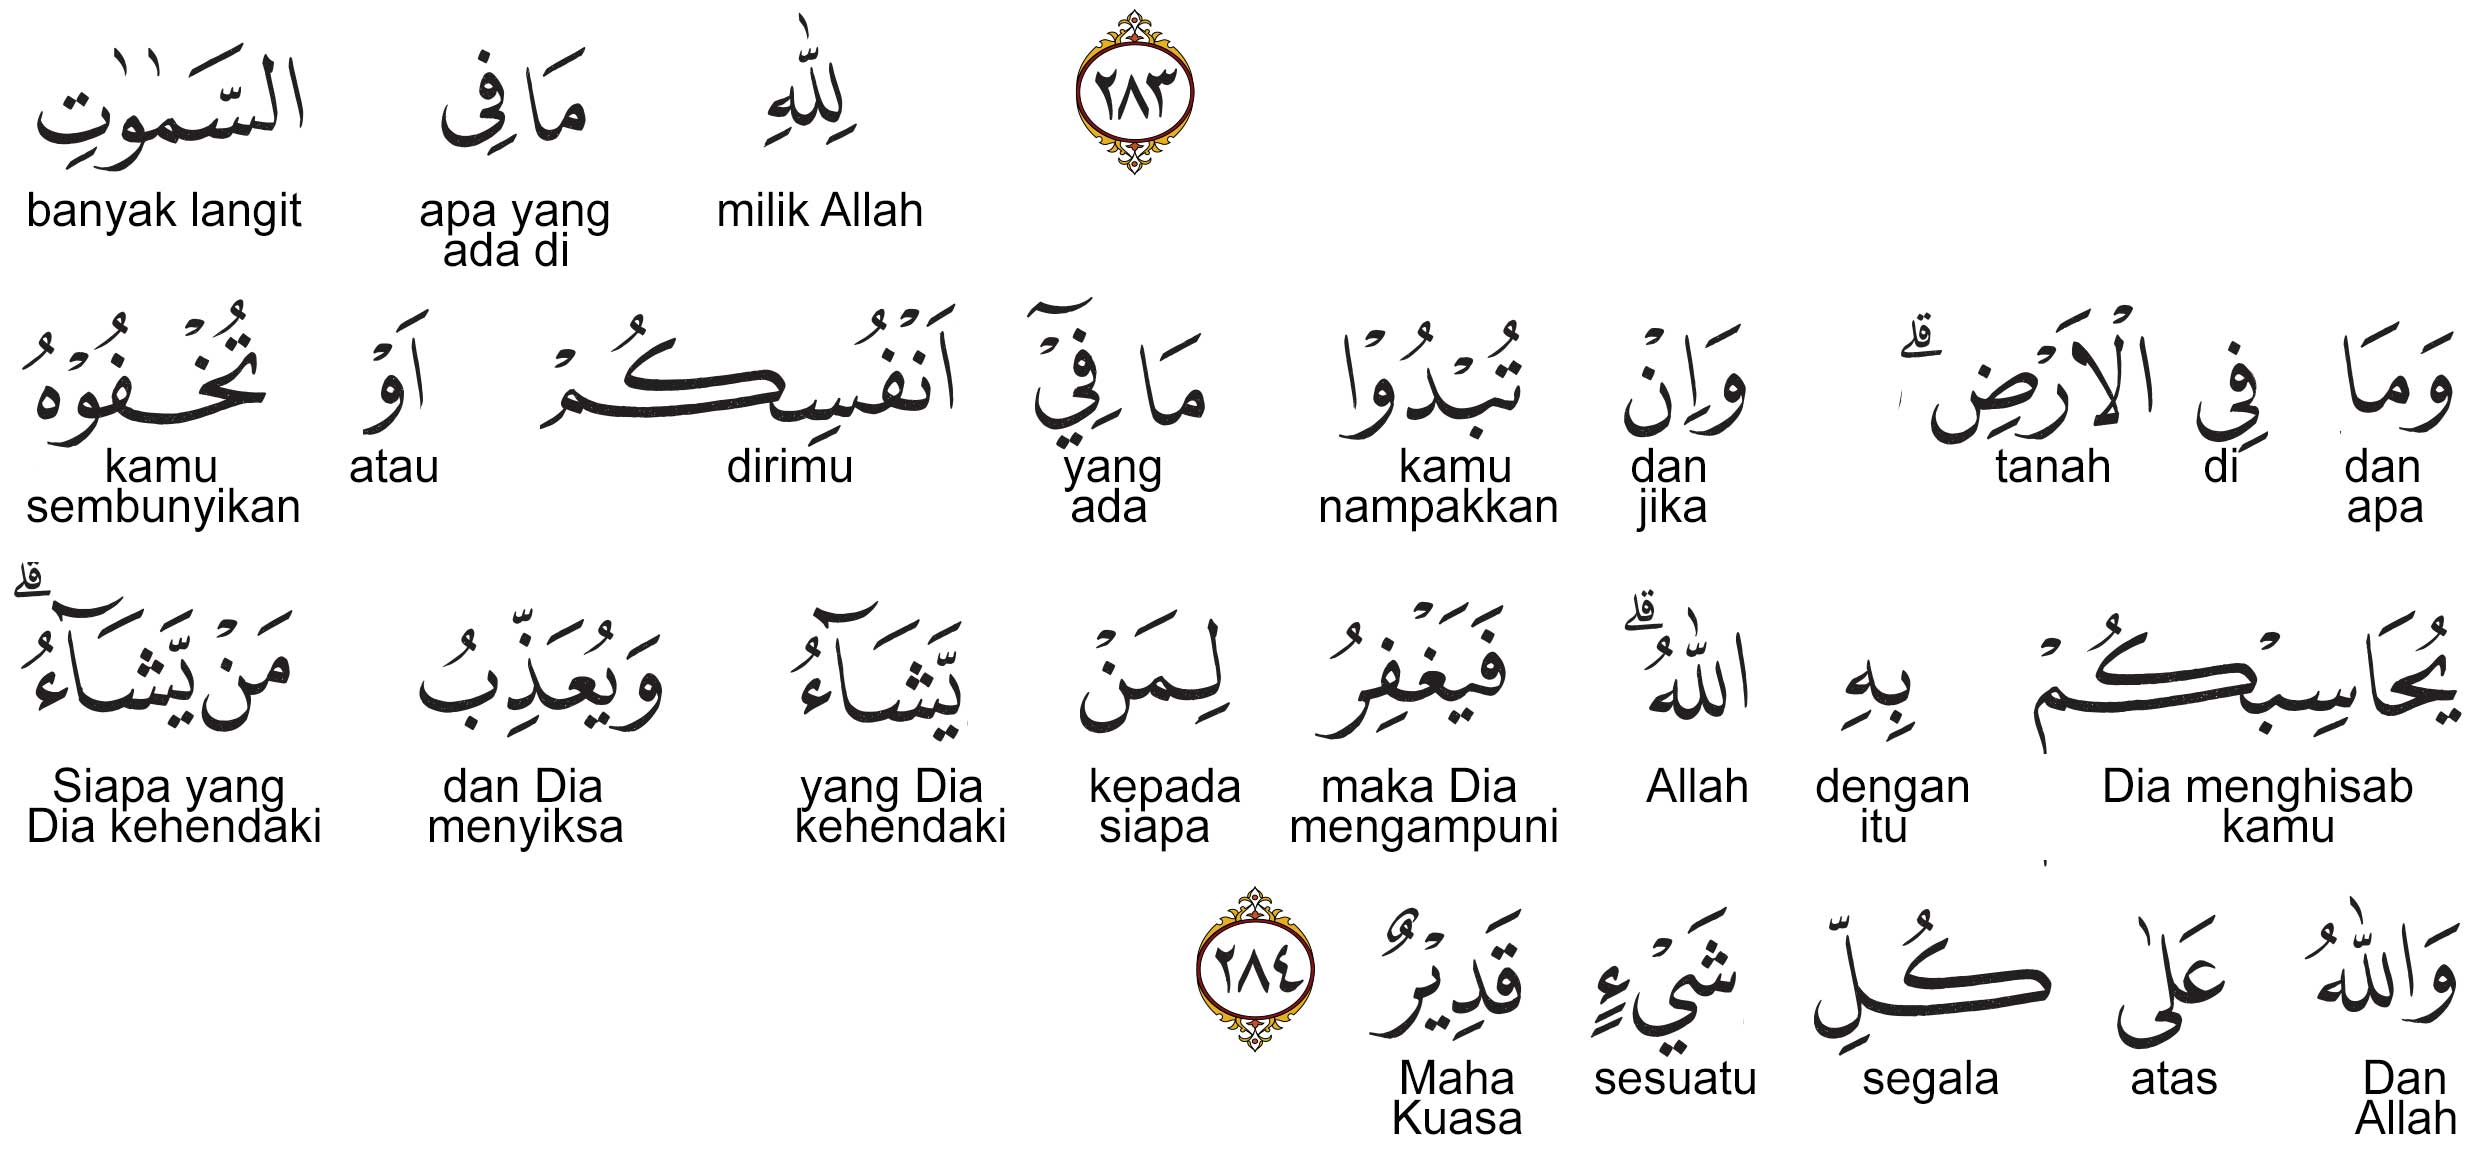 ٢٨٣ لِلّٰهِ مَا فِى السَّمٰوٰتِ
milik Allah apa yang ada di banyak langit
وَمَا فِى الْاَرْضِ ۗ وَاِنْ تُبْدُوْا مَا فِيْٓ اَنْفُسِكُمْ اَوْ تُخْفُوْهُ
dan apa di tanah dan jika kamu nampakkan yang ada dirimu atau kamu sembunyikan
يُحَاسِبْكُمْ بِهِ اللّٰهُ ۗ فَيَغْفِرُ لِمَنْ يَّشَاۤءُ وَيُعَذِّبُ مَنْ يَّشَاۤءُ ۗ
Dia menghisab kamu dengan itu Allah maka Dia mengampuni kepada siapa yang Dia kehendaki dan Dia menyiksa Siapa yang Dia kehendaki
وَاللّٰهُ عَلٰى كُلِّ شَيْءٍ قَدِيْرٌ ٢٨٤
Dan Allah atas segala sesuatu Maha Kuasa